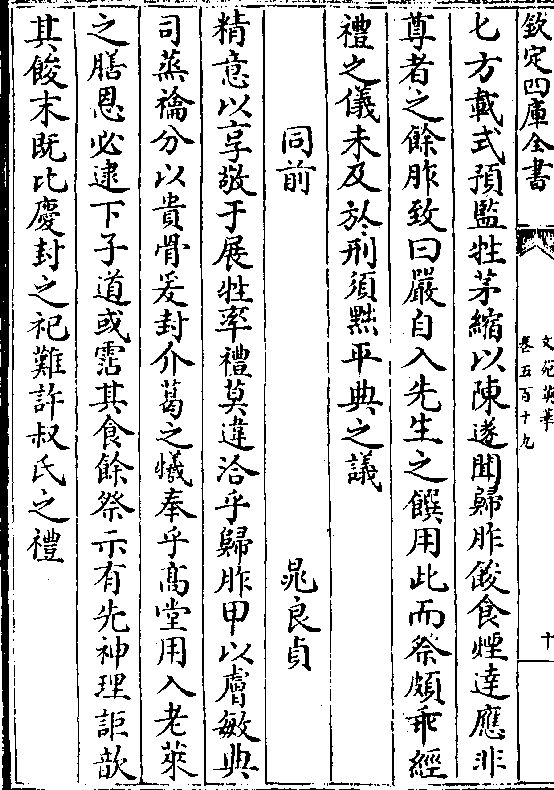 欽定四庫全書
文苑英華
卷五百十九
十
七方載式預監牲茅縮以陳遂聞歸胙餕食煙達應非
尊者之餘胙致曰嚴自入先生之饌用此而祭頗乖經
禮之儀未及於刑須㸃平典之議
同前 晁良貞
精意以享敬于展牲率禮莫違洽乎歸胙甲以膚敏典
司蒸禴分以貴骨爰封介葛之犧奉乎高堂用入老萊
之膳恩必逮下子道或霑其食餘祭示有先神理詎歆
其餕末既比慶封之祀難許叔氏之禮